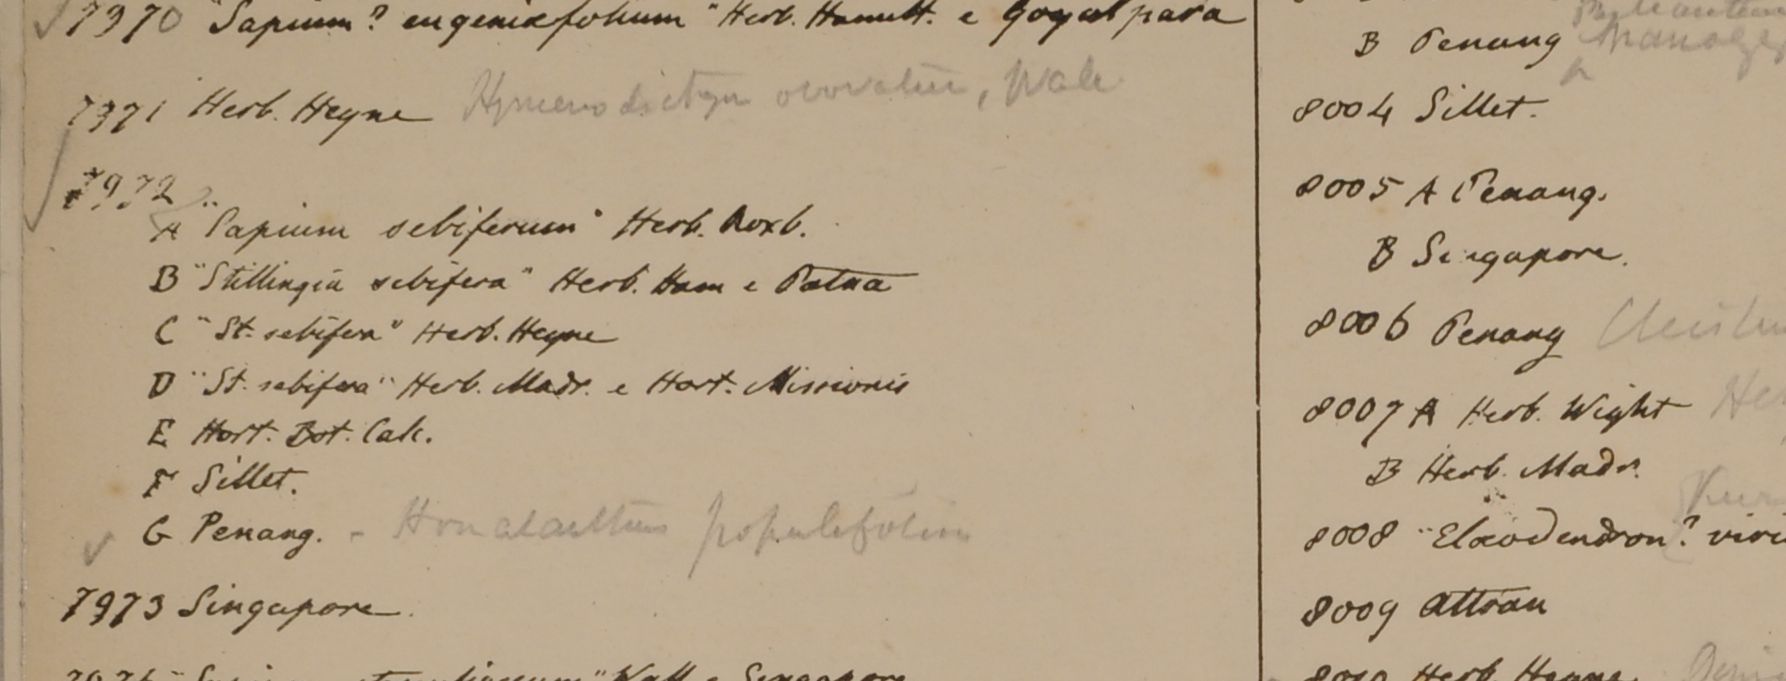 7970 "Sapium? eugeniæfolium" Herb. Hamilt. e Goyalpara
7971 Herb. Heyne Hymenodictyon obovatum, Wall
7972
A "Sapium sebiferum" Herb. Roxb.
B "Stillingia sebifera" Herb. Ham e Patna
C "St. sebifera" Herb. Heyne
D "St. sebifera" Herb. Madr. e Hort. Missionis
E Hort. Bot. Calc.
F Sillet.
G Penang. - Homalanthus populifolius
7973 Singapore.
B Penang
8004 Sillet.
8005 A Penang.
B Singapore.
8006 Penang
8007 A Herb. Wight
B Herb. Madr.
8008 "Elæodendron?
8009 Attran
8010 Herb. Heyne